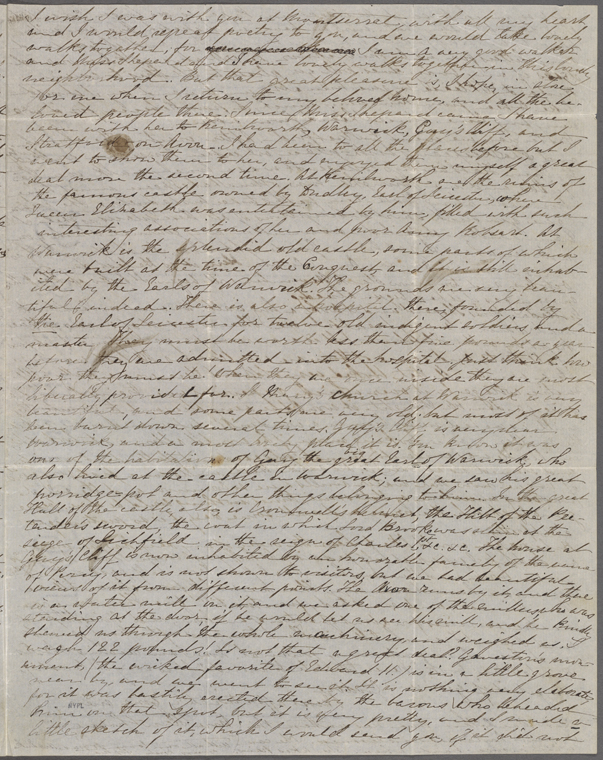 I wish I was with you at Montserrat, with all my heart
and I would repeat poetry to you, and we would take lovely
walks together, for I am a very good walker
and Miss Shepard and I have lovely walks together in this lovely
neighborhood. But that great pleasure is, I hope, in store
for me when I return to my beloved home, and all the be-
loved people there. Since Miss Shepard came I have
been with her to Kenilworth, Warwick, Guy's Cliff, and
Stratford on Avon. I had been to all the places before but I
went to show them to her, and enjoyed them myself a great
deal more the second time. At Kenilworth are the ruins of
the famous castle owned by Dudley, Earl of Leicester, where
Queen Elizabeth was entertained by him, filled with such
interesting associations of her and poor Amy Robsart. At
Warwick is the splendid old castle, some parts of which
were built at the time of the Conquest, and is still inhab-
ited by the Earls of Warwick. The grounds are very beau-
tiful indeed. There is also a hospital there, founded by
the Earl of Leicester for twelve old indigent soldiers, and a
master. They must be worth less than five pounds a year
before they are admitted into the hospital. Just think how
poor they must be. When they are once inside they are most
liberally provided for. St Mary's church at Warwick is very
beautiful, and some parts are very old, but most of it has
been burnt down several times. Guy's Cliff is very near
Warwick, and a most lovely place it is. You know it was
one of the habitations of Guy, the great Earl of Warwick, who
also lived at the castle in Warwick; and we saw his great
porridge-pot and other things belonging to him. In the great
Hall of the castle, also is Cromwell's helmet, the Hilt of the Pre-
tender's sword, the coat in which Lord Brook was slain at the
seige of Litchfield in the reign of Charles 1st &c. &c. The house at
Guy's Cliff is now inhabited by an honorable family of the name
of Percy, and is not shown to visitors, but we had beautiful
views of it from different points. The Avon runs by it, and there
is a water mill on it, and we asked one of the millers who was
standing at the door, if he would let us see his mill, and he kindly
showed us through the whole machinery, and weighed us. I
weigh 122 pounds. Is not that a great deal? Gaveston's mon-
ument, (the wicked favorite of Edward II) is in a little grove
near by, and we went to see it. It is nothing very elaborate
for it was hastily erected there by the barons who beheaded
him on that spot, but it is very pretty, and I made a
little sketch of it, which I would send you if it did not